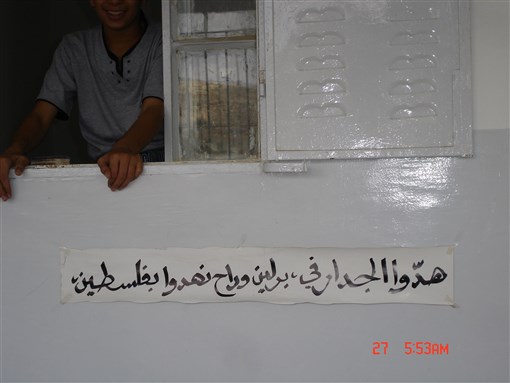 هدّوا الجدار في برلين وراح نهدوا بفلسطين
27 5:53AM